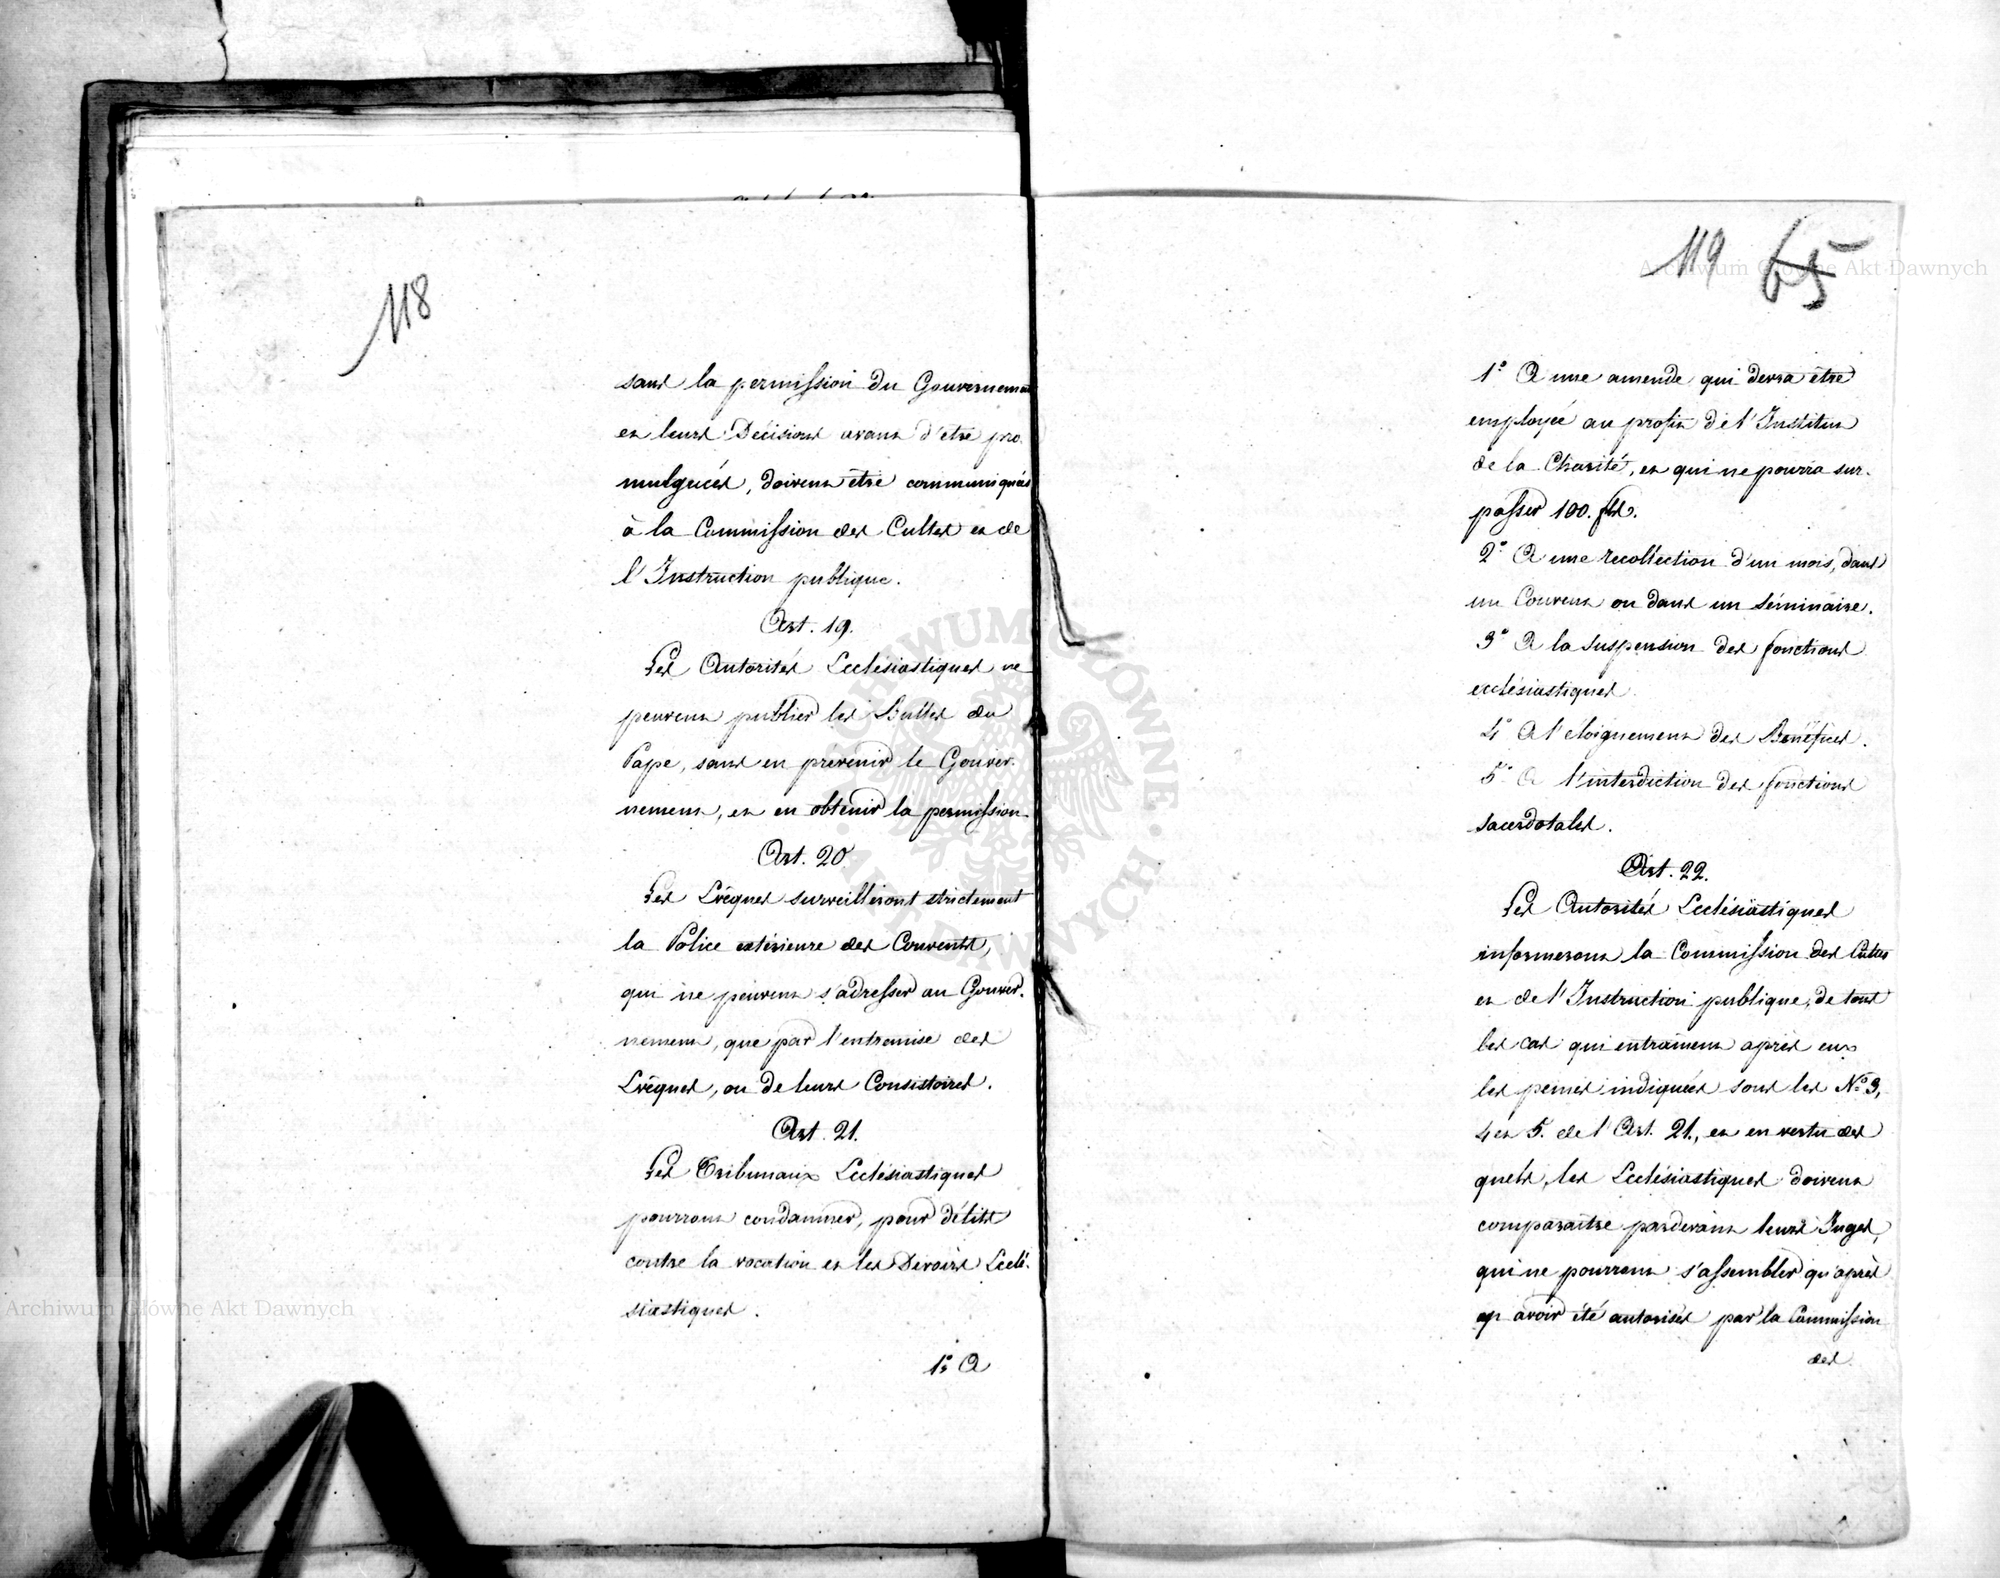 118
sans la permission du Gouvernement
et leurs Décisions avant d'etre pro
mulguées, doivent etre communiquées
à la Commission des Cultes et de
l'Instruction publique.
Art. 19.
Les Autorités Ecclésiastiques ne
peuvent publier les Bulles du
Pape, sans en prévenir le Gouver-
nement, et en obtenir la permission.
Art. 20
Les Evêques surveilleront strictement
la Police extérieure des Couvents,
qui ne peuvent s'adresser au Gouver-
nement, que par l'entremise des
Evêques, ou de leurs Consistoires.
Art. 21.
Les Tribunaux Ecclésiastiques
pourront condamner, pour délits
contre la vocation et les Devoirs Ecclé-
siastiques.
1° A
119 65
1° A une amende qui devra être
employée au profit de l'Institut
de la Charité, et qui ne pourra sur-
passer 100. fls.
2° A une recollection d'un mois, dans
un Couvent ou dans un Séminaire.
3° A la suspension des fonctions
ecclésiastiques
4° A l'eloignement des Bénéfices.
5° A l'interdiction des fonctions
sacerdotales.
Art. 22.
Les Autorités Ecclésiastiques
informeront la Commission des Cultes
et de l'Instruction publique, de tous
les cas qui entrainent après eux
les peines indiquées sous les N° 3,
4 et 5. de l'Art. 21., et en vertu des
quels, les Ecclésiastiques doivent
comparaître pardevant leurs Juges,
qui ne pourront s'assembler qu'après
ap avoir été autorisés par la Commission
des
Archiwum Główne Akt Dawnych
Archiwum Główne Akt Dawnych
ARCHIWUM GŁÓWNE AKT DAWNYCH